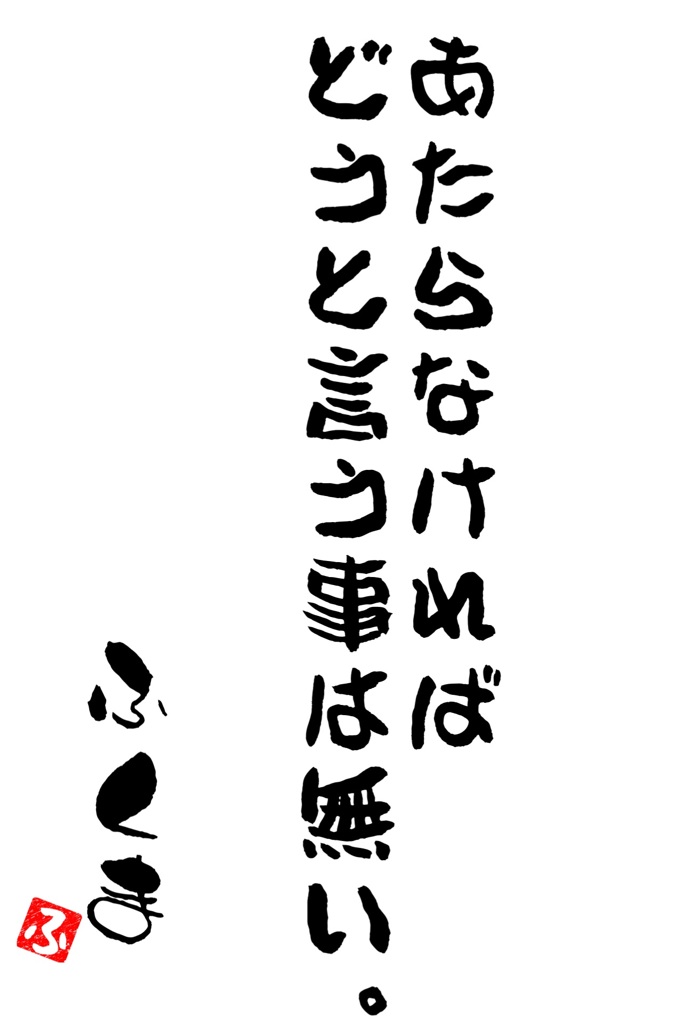 あたらなければ
どうと言う事は無い。
ふくま
ふ